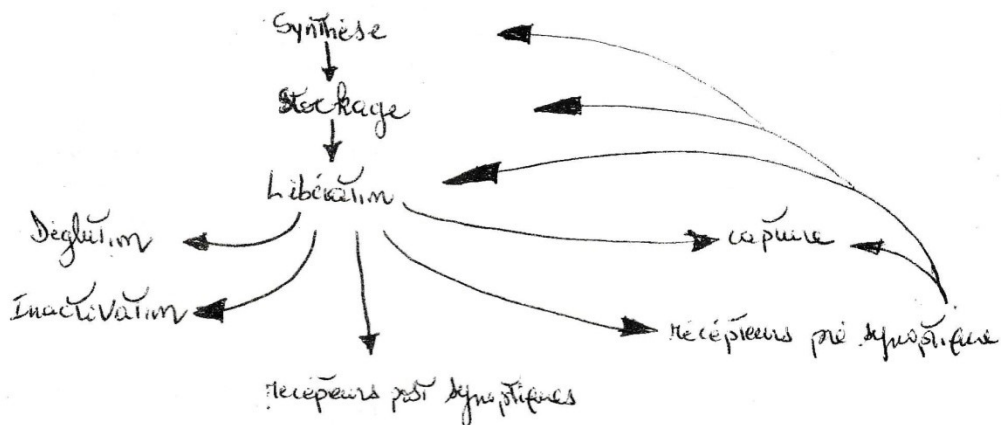 Synthèse
Stockage
Libération
Déglution
capture
Inactivation
récépteurs pré synoptique
récépteurs post synoptiques